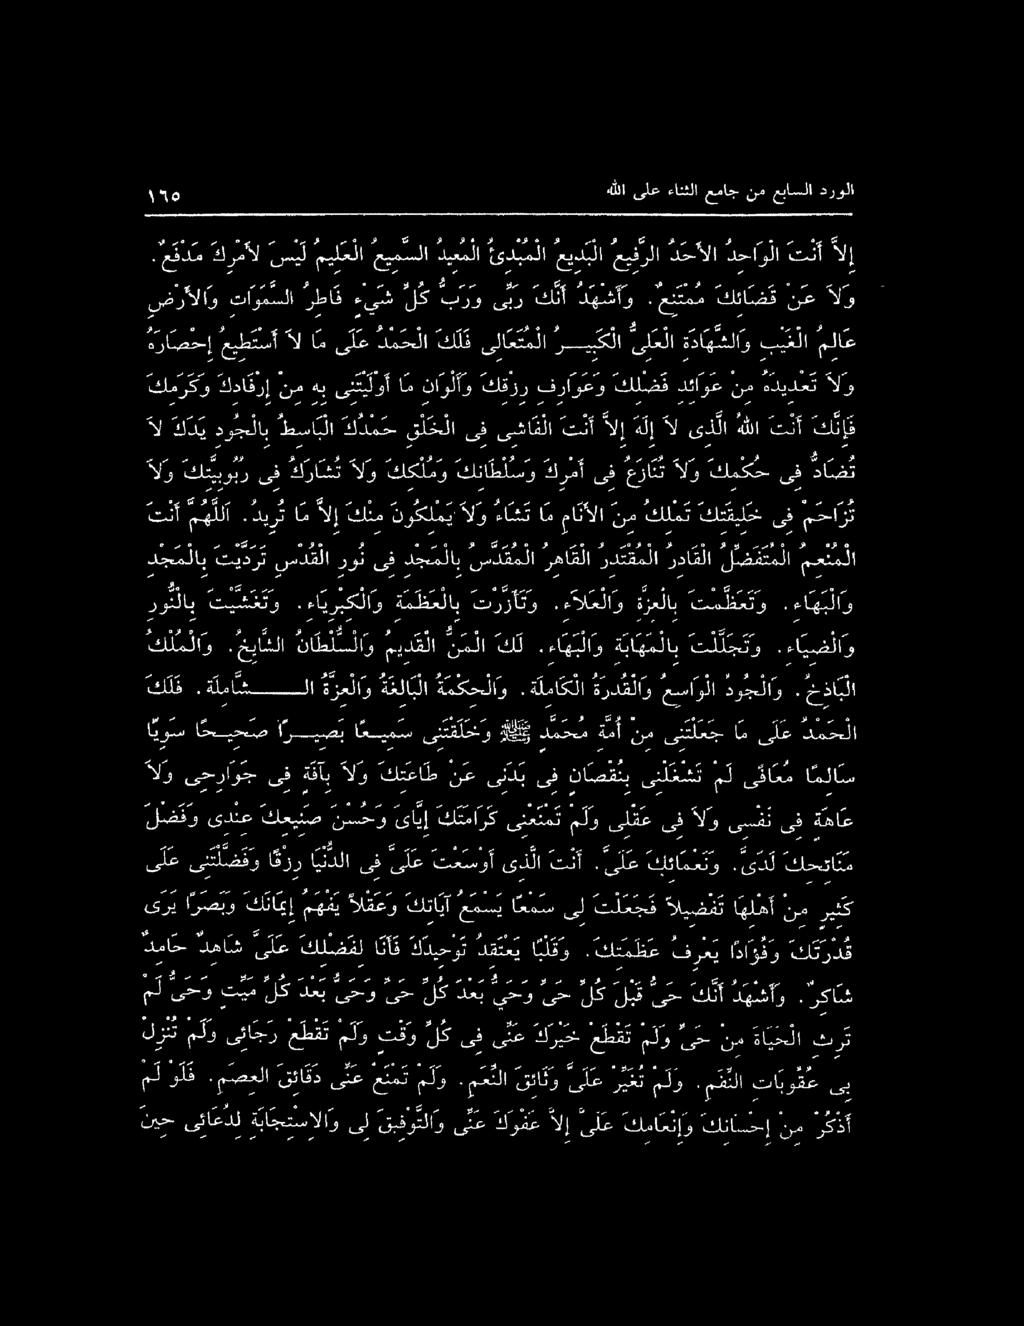 الورد السابع من جامع الثناء على الله
١٦٥
إِلاَّ أَنْتَ الْوَاحِدُ الأَحَدُ الرَّفِيعُ الْبَدِيعُ الْمُبْدِئُ الْمُعِيدُ السَّمِيعُ الْعَلِيمُ لَيْسَ لأَمْرِكَ مَدْفَعٌ.
وَلاَ عَنْ قَضَائِكَ مُمْتَنِعٌ. وَأَشْهَدُ أَنَّكَ رَبِّى وَرَبُّ كُلِّ شَىْءٍ فَاطِرُ السَّمَوَاتِ وَالأَرْضِ
عَالِمُ الْغَيْبِ وَالشَّهَادَةِ الْعَلِىُّ الْكَبِيــرُ الْمُتَعَالِى فَلَكَ الْحَمْدُ عَلَى مَا لاَ أَسْتَطِيعُ إِحْصَارَهُ
وَلاَ تَعْدِيدَهُ مِنْ عَوَائِدِ فَضْلِكَ وَعَوَارِفِ رِزْقِكَ وَأَلْوَانِ مَا أَوْلَيْتَنِى بِهِ مِنْ إِرْفَادِكَ وَكَرَمِكَ
فَإِنَّكَ أَنْتَ اللهُ الَّذِى لاَ إِلَهَ إِلاَّ أَنْتَ الْفَاشِى فِى الْخَلْقِ حَمْدُكَ الْبَاسِطُ بِالْجُودِ يَدَكَ لاَ
تُضَادُّ فِى حُكْمِكَ وَلاَ تُنَازَعُ فِى أَمْرِكَ وَسُلْطَانِكَ وَمُلْكِكَ وَلاَ تُشَارَكُ فِى رُبُوبِيَّتِكَ وَلاَ
تُزَاحَمُ فِى خَلِيقَتِكَ تَمْلِكُ مِنَ الأَنَامِ مَا تَشَاءُ وَلاَ يَمْلِكُونَ مِنْكَ إِلاَّ مَا تُرِيدُ. اَللَّهُمَّ أَنْتَ
الْمُنْعِمُ الْمُتَفَضِّلُ الْقَادِرُ الْمُقْتَدِرُ الْقَاهِرُ الْمُقَدَّسُ بِالْمَجْدِ فِى نُورِ الْقُدْسِ تَرَدَّيْتَ بِالْمَجْدِ
وَالْبَهَاءِ. وَتَعَظَّمْتَ بِالْعِزَّةِ وَالْعَلاَءِ. وَتَأَزَّرْتَ بِالْعَظَمَةِ وَالْكِبْرِيَاءِ. وَتَغَشَّيْتَ بِالنُّورِ
وَالضِّيَاءِ. وَتَجَلَّلْتَ بِالْمَهَابَةِ وَالْبَهَاءِ. لَكَ الْمَنُّ الْقَدِيمُ وَالسُّلْطَانُ الشَّابِخُ. وَالْمُلْكُ
الْبَاذِخُ. وَالْجُودُ الْوَاسِعُ وَالْقُدْرَةُ الْكَامِلَة. وَالْحِكْمَةُ الْبَالِغَةُ وَالْعِزَّةُ الـــشَّامِلَة. فَلَكَ
الْحَمْدُ عَلَى مَا جَعَلْتَنِى مِنْ أُمَّةِ مُحَمَّدٍ ﷺ وَخَلَقْتَنِى سَمِيــعًا بَصِيــرًا صَحِيــحًا سَوِيًّا
سَالِمًا مُعَافًى لَمْ تَشْغَلْنِى بِنُقْصَانٍ فِى بَدَنِى عَنْ طَاعَتِكَ وَلاَ بِآفَةٍ فِى جَوَارِحِى وَلاَ
عَاهَةٍ فِى نَفْسِى وَلاَ فِى عَقْلِى وَلَمْ تَمْنَعْنِى كَرَامَتَكَ إِيَّاىَ وَحُسْنَ صَنِيعِكَ عِنْدِى وَفَضْلَ
مَنَائِحِكَ لَدَىَّ. وَنَعْمَائِكَ عَلَىَّ. أَنْتَ الَّذِى أَوْسَعْتَ عَلَىَّ فِى الدُّنْيَا رِزْقًا وَفَضَّلْتَنِى عَلَى
كَثِيرٍ مِنْ أَهْلِهَا تَفْضِيلاً فَجَعَلْتَ لِى سَمْعًا يَسْمَعُ آيَاتِكَ وَعَقْلاً يَفْهَمُ إِيمَانَكَ وَبَصَرًا يَرَى
قُدْرَتَكَ وَفُؤَادًا يَعْرِفُ عَظَمَتَكَ. وَقَلْبًا يَعْتَقِدُ تَوْحِيدَكَ فَأَنَا لِفَضْلِكَ عَلَىَّ شَاهِدٌ حَامِدٌ
شَاكِرٌ. وَأَشْهَدُ أَنَّكَ حَىٌّ قَبْلَ كُلِّ حَىٍّ وَحَىٌّ بَعْدَ كُلِّ حَىٍّ وَحَىٌّ بَعْدَ كُلِّ مَيِّتٍ وَحَىٌّ لَمْ
تَرِثِ الْحَيَاةَ مِنْ حَىٍّ وَلَمْ تَقْطَعْ خَيْرَكَ عَنِّى فِى كُلِّ وَقْتٍ وَلَمْ تَقْطَعْ رَجَائِى وَلَمْ تُنْزِلْ
بِى عُقُوبَاتِ النِّقَمِ. وَلَمْ تُغَيِّرْ عَلَىَّ وَثَائِقَ النِّعَمِ. وَلَمْ تَمْنَعْ عَنِّى دَقَائِقَ الْعِصَمِ. فَلَوْ لَمْ
أَذْكُرْ مِنْ إِحْسَانِكَ وَإِنْعَامِكَ عَلَىَّ إِلاَّ عَفْوَكَ عَنِّى وَالتَّوْفِيقَ لِى وَالاِسْتِجَابَةِ لِدُعَائِى حِينَ